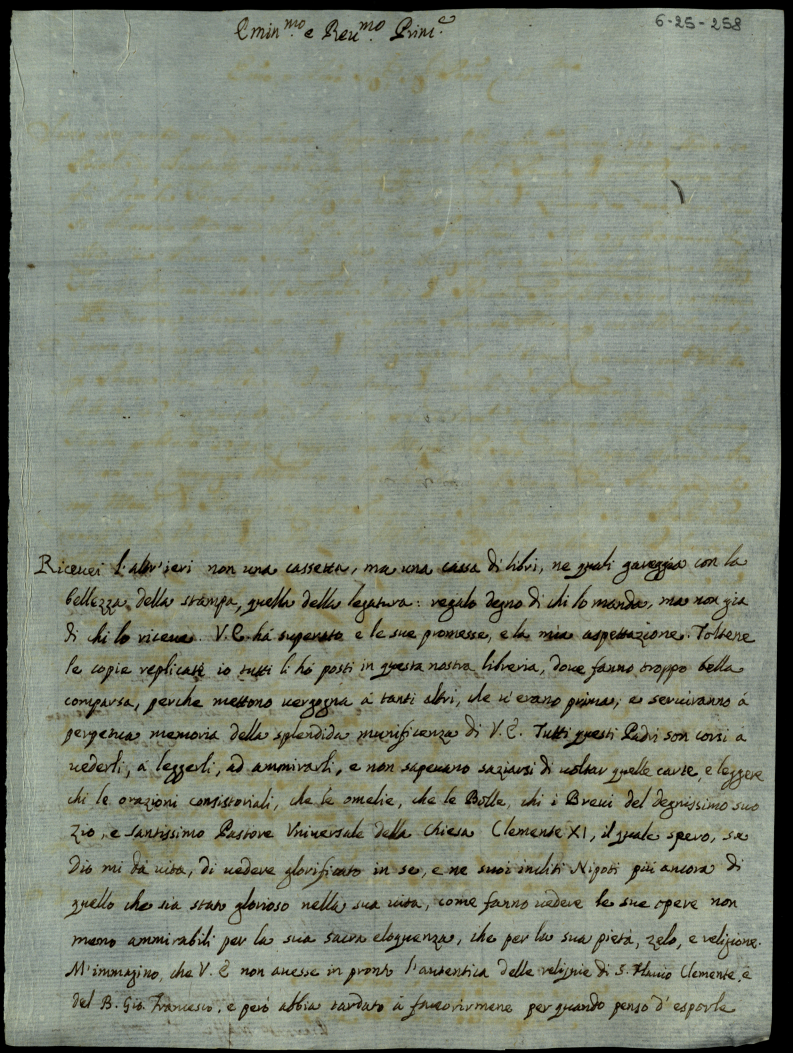 6-25-258
Emin.mo e Reu.mo Princ.e
Riceuei l'altr'ieri non una cassetta, ma una cassa di libri, ne quali gareggia con la
bellezza della stampa, quella della legatura: regalo degno di chi lo manda, ma non già
di chi lo riceue. V.E. há superato e le sue promesse, e la mia aspettazione. Toltene
le copie replicate io tutti li hó posti in questa nostra libreria, doue fanno troppo bella
comparsa, perche mettono uergogna á tanti altri, che u'erano prima; e seruiranno á
perpetua memoria della splendida munificenza di V.E. Tutti questi Padri son corsi a
uederli, á leggerli, ad ammirarli, e non sapeuano saziarsi di uoltar quelle carte, e leggere
chi le orazioni consistoriali, che le omelie, che le Bolle, chi i Breui del degnissimo suo
zio, e santissimo Pastore Vniuersale della Chiesa Clemente XI, il quale spero, se
Dio mi dá uita, di uedere glorificato in se, e ne suoi incliti Nipoti piú ancora di
quello che sia stato glorioso nella sua uita, come fanno uedere le sue opere non
meno ammirabili per la sua sacra eloquenza, che per la sua pietá, zelo, e religione.
M'immagino, che V.E. non auesse in pronto l'autentica delle reliquie di S. Flauio Clemente, e
del B. Gio. Francesco, e peró abbia tardato á fauorirmene per quando penso d'esporle